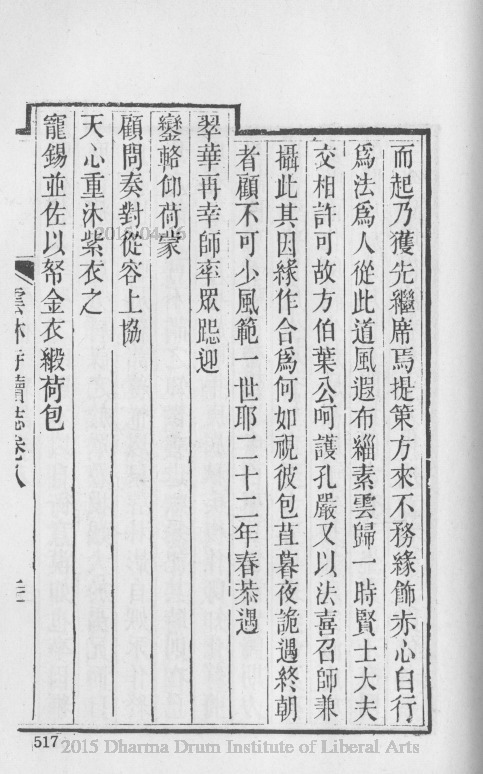 而起乃獲先繼席焉提策方來不務緣飾赤心白行
爲法爲人從此道風遐布緇素雲歸一時賢士大夫
交相許可故方伯葉公呵護孔嚴又以法喜召師兼
攝此其因緣作合爲何如視彼包苴暮夜詭遇終朝
者顧不可少風範一世耶二十二年春恭遇
翠華再幸師率眾跽迎
鑾輅仰荷蒙
顧問奏對從容上協
天心重沐紫衣之
寵錫並佐以帑金衣緞荷包
雲林寺續誌卷八
517
2015 Dharma Drum Institute of Liberal Arts